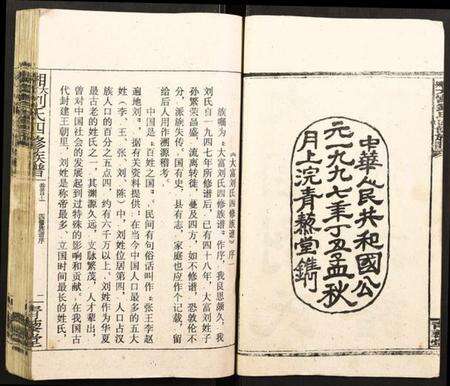 中華人民共和國公
元一九九七年丁丑孟秋
月上浣青藜堂鐫
《大富刘氏四修族谱》序一
族嘱为《大富刘氏四修族谱》作序，我良思颇久，我
刘氏自一九四七年修谱后，已有四十八年，大富刘姓子
孙繁荣昌盛，流离转徙，蔓及四方，如不修谱，恐敦伦不
分，派脉失传。国有史，县有志，家庭也应作个记载，留
给后人用作溯源稽考。
中国是“百姓之国”，民间有句俗话叫作“张王李赵
遍地刘”。据有关资料提供：在当今中国人口最多的五大
姓（李、王、张、刘、陈）中，刘姓位居第四，人口占汉
族人口的百分之五点四，约有六千万以上，刘姓作为华夏
最古老的姓氏之一，其渊源久远，文脉繁茂，人才辈出，
曾对中国社会的发展起到过特殊的影响和贡献。在我国古
代封建王朝里，刘姓是称帝最多，立国时间最长的姓氏，
刘氏四修族谱
四修谱序
二
青藜堂